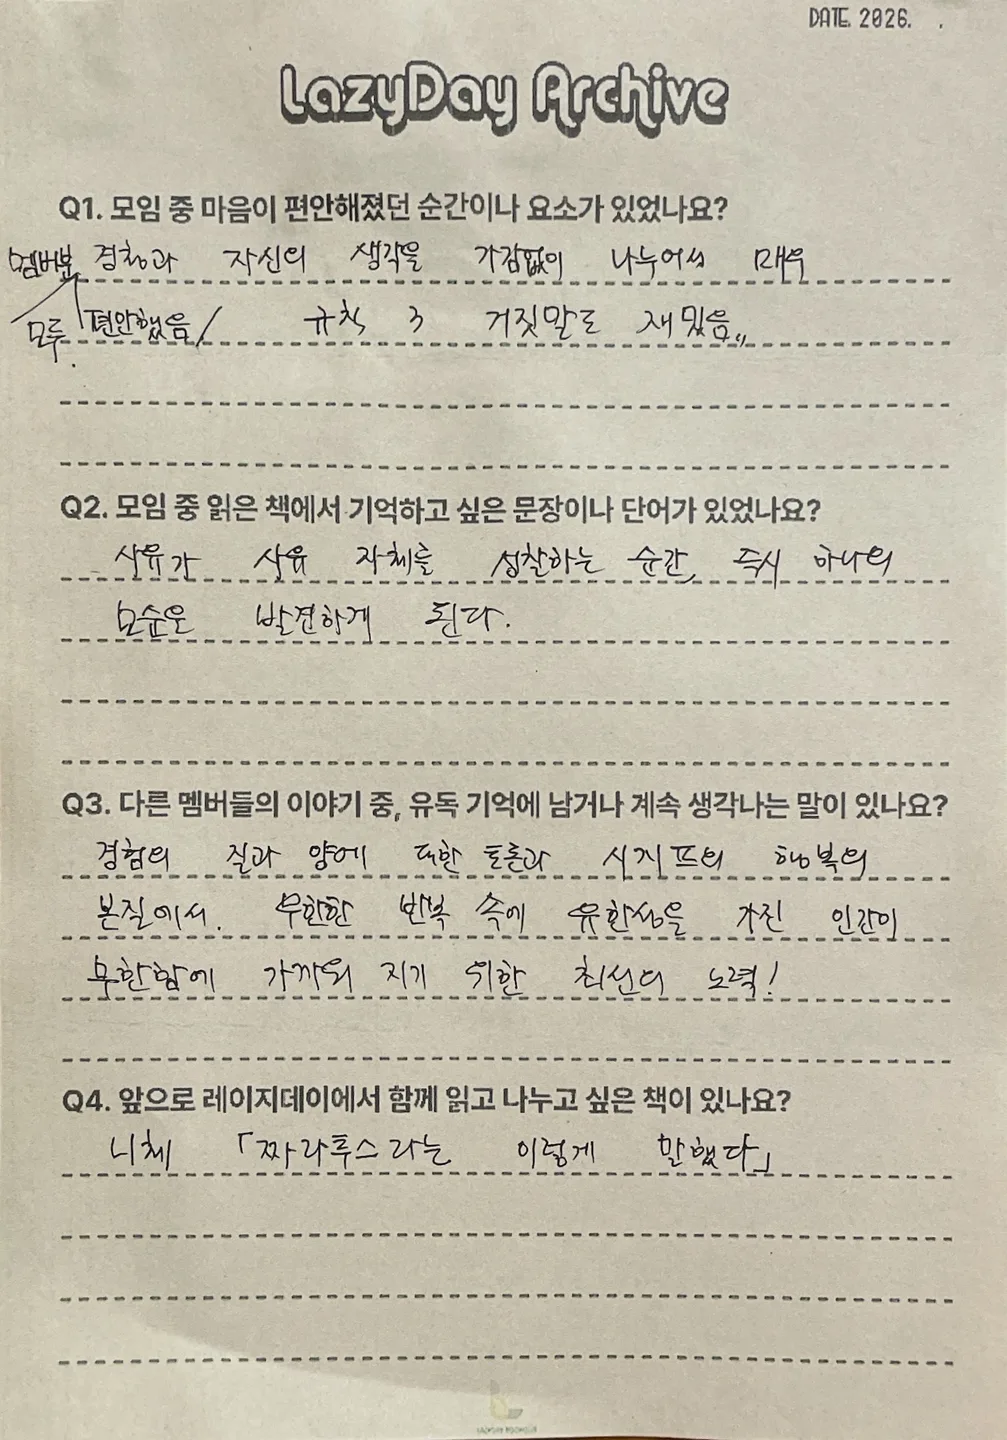 DATE. 2026. .
LazyDay Archive
Q1. 모임 중 마음이 편안해졌던 순간이나 요소가 있었나요?
멤버분 경험과 자신의 생각을 가감없이 나누어서 매우
모두 편안했음/ 규칙 3 거짓말도 재밌음,,
Q2. 모임 중 읽은 책에서 기억하고 싶은 문장이나 단어가 있었나요?
사유가 사유 자체를 성찰하는 순간, 즉시 하나의
모순을 발견하게 된다.
Q3. 다른 멤버들의 이야기 중, 유독 기억에 남거나 계속 생각나는 말이 있나요?
경험의 질과 양에 대한 토론과 시지프의 행복의
본질에서. 무한한 반복 속에 유한성을 가진 인간이
무한함에 가까워 지기 위한 최선의 노력!
Q4. 앞으로 레이지데이에서 함께 읽고 나누고 싶은 책이 있나요?
니체 「짜라투스라는 이렇게 말했다」